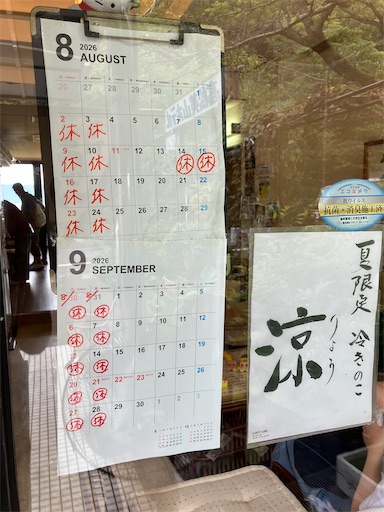 8 2026 AUGUST
26 27 28 29 30 31 1
2 3 4 5 6 7 8
休 休
9 10 11 12 13 14 15
休 休 休 休
16 17 18 19 20 21 22
休 休
23 24 25 26 27 28 29
休 休
9 2026 SEPTEMBER
8/30 8/31 1 2 3 4 5
休 休
6 7 8 9 10 11 12
休 休
13 14 15 16 17 18 19
休 休
20 21 22 23 24 25 26
休 休
27 28 29 30
休 休
エコキメラ
抗ウイルス
抗菌・消臭施工済
夏限定 冷きのこ
りょう
涼